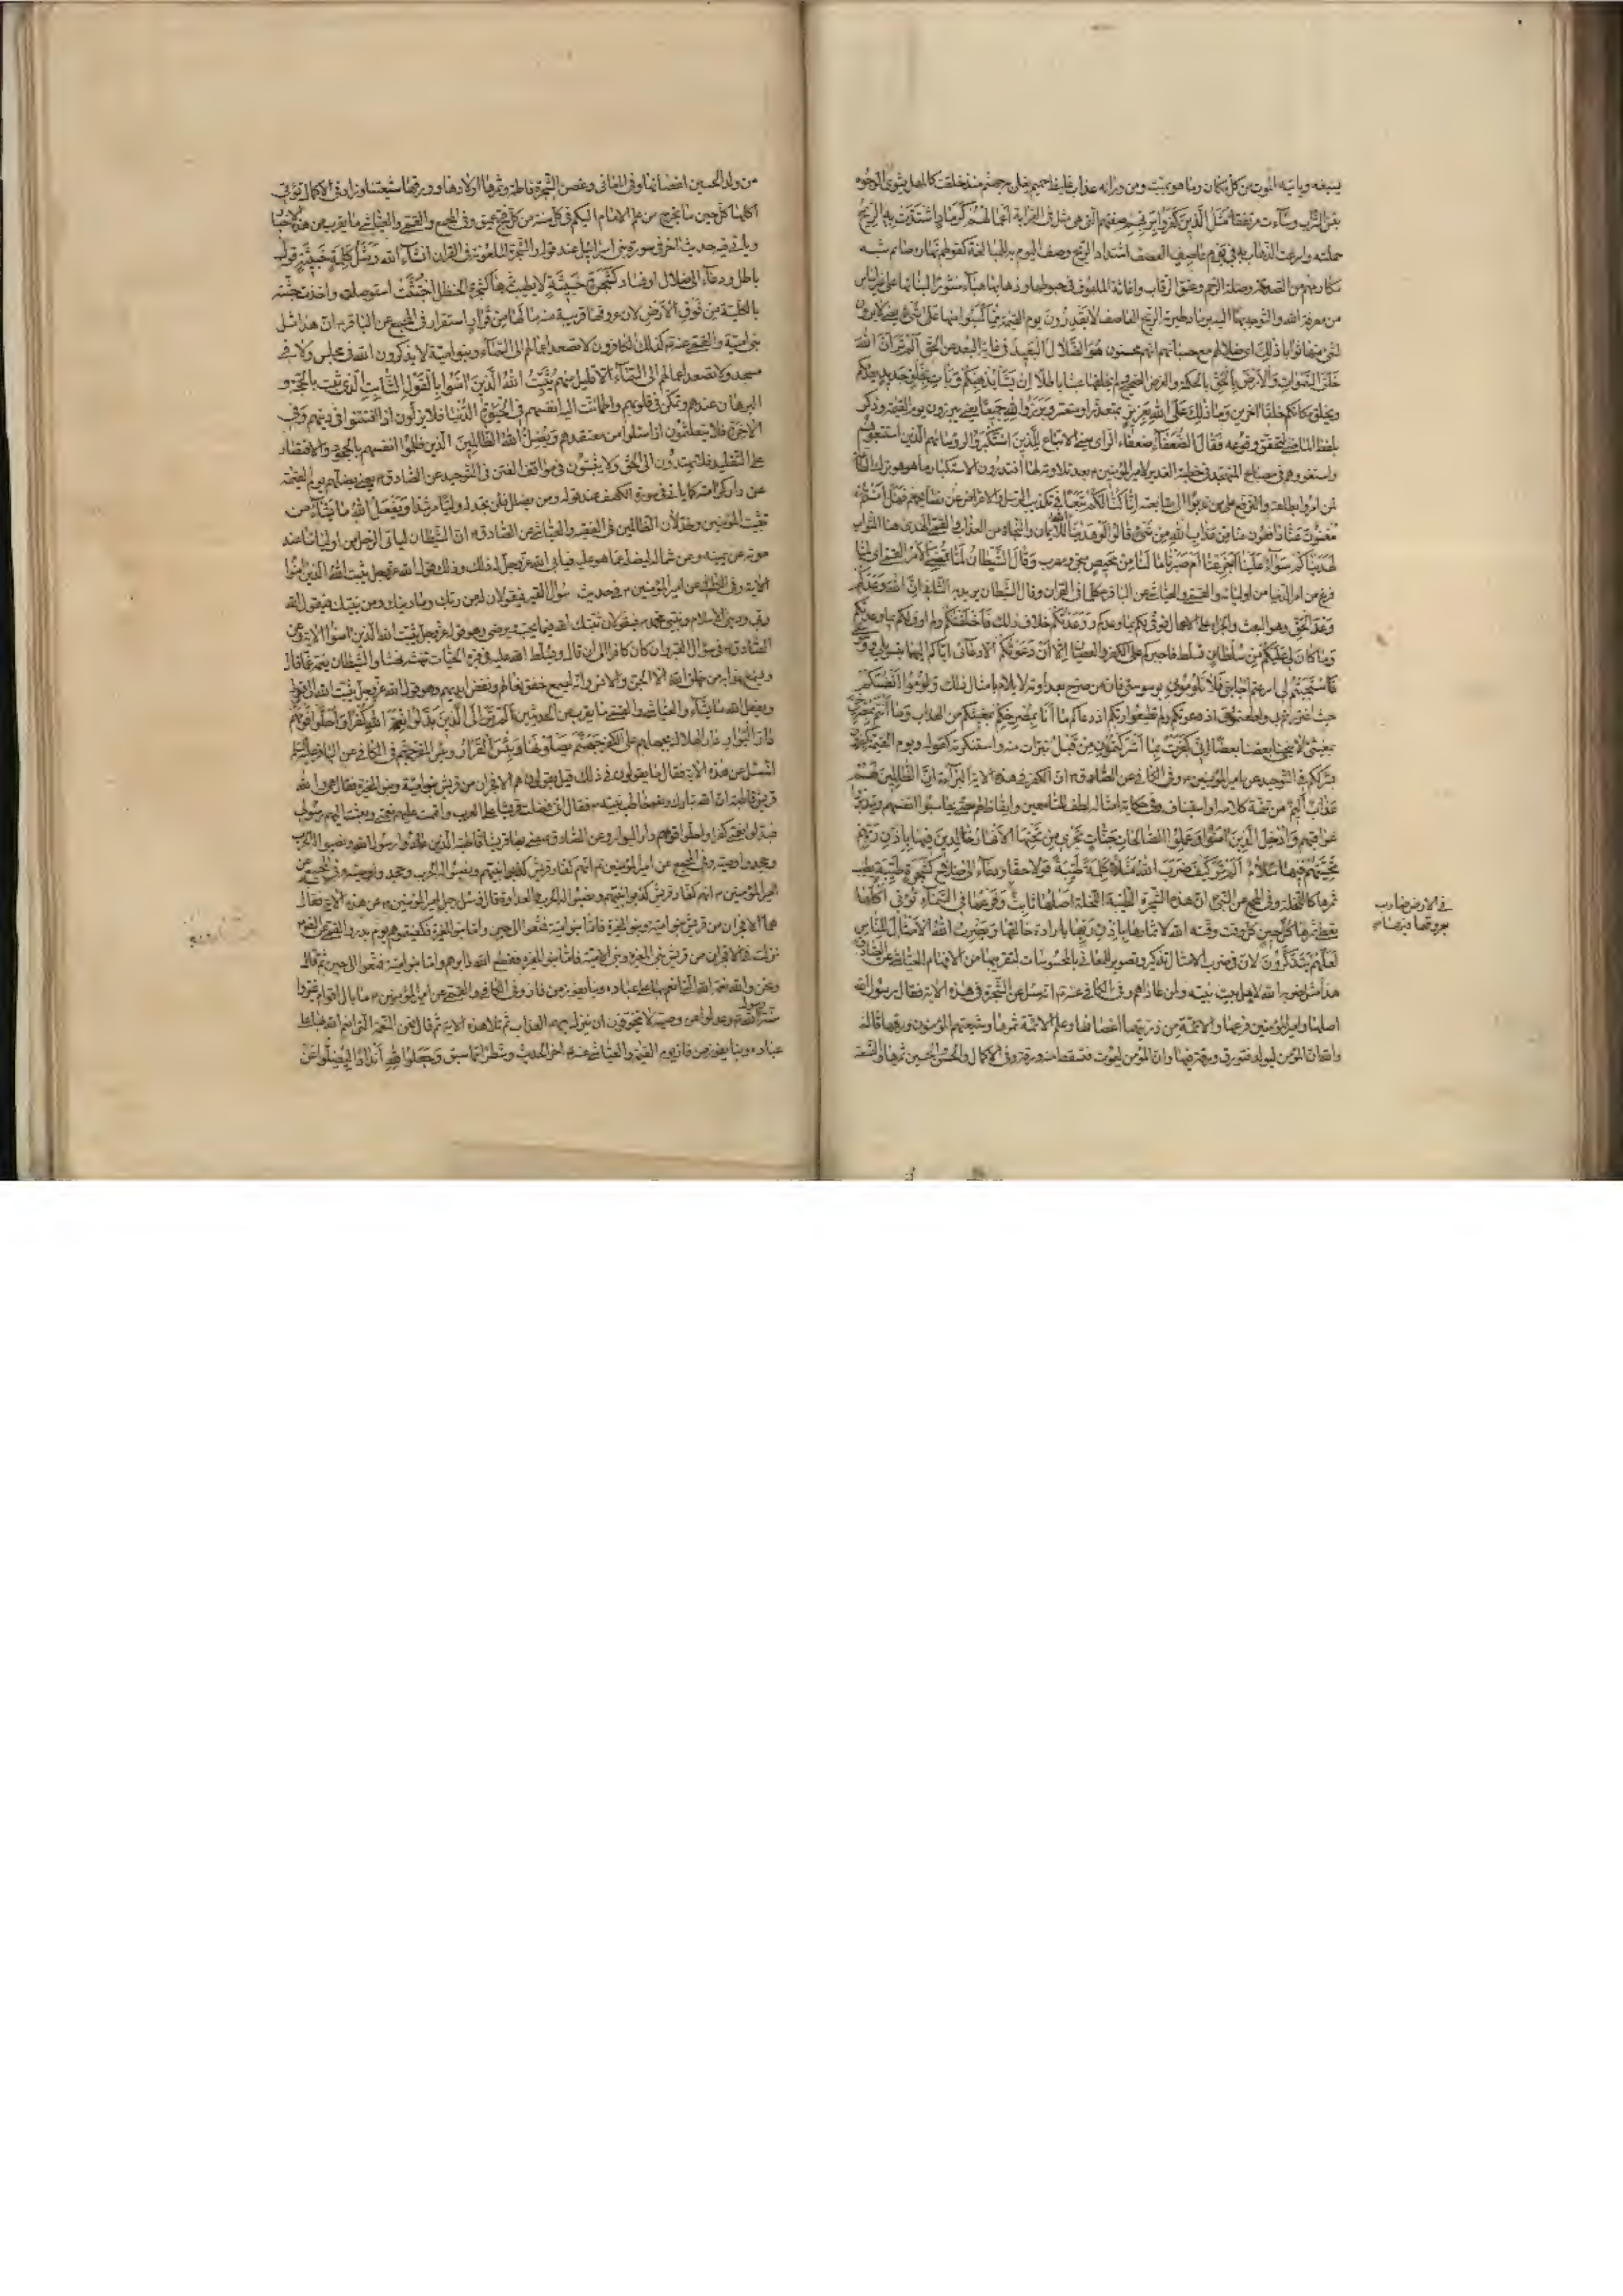 يسيغه ويأتيه الموت من كل مكان وما هو بميت ومن ورائه عذاب غليظ
مثل الذين كفروا بربهم صفتهم التي هي مثل في الغرابة أعمالهم كرماد اشتدت به الريح
حملته وأسرعت الذهاب به في يوم عاصف العصف اشتداد الريح وصف اليوم به للمبالغة كقولهم نهاره صائم شبه
مكارمهم من الصدقة وصلة الرحم وعتق الرقاب وإغاثة الملهوف في حبوطها وذهابها هباء منثورا لبنائها على غير أساس
من معرفة الله والتوجه بها إليه برماد طيرته الريح العاصف لا يقدرون يوم القيمة مما كسبوا منها على شيء
ذلك أي ضلالهم مع حسبانهم أنهم محسنون هو الضلال البعيد في غاية البعد عن الحق ألم تر أن الله
خلق السموات والأرض بالحق بالحكمة والغرض الصحيح ولم يخلقها عبثا باطلا إن يشأ يذهبكم ويأت بخلق جديد يعدمكم
ويخلق مكانكم خلقا آخرين وما ذلك على الله بعزيز بمتعذر أو متعسر وبرزوا لله جميعا يعني يبرزون يوم القيمة وذكر
بلفظ الماضي لتحقق وقوعه فقال الضعفاء ضعفاء الرأي يعني الأتباع للذين استكبروا لرؤسائهم الذين استتبعوهم
واستغووهم في مصباح المتهجد في خطبة الغدير لأمير المؤمنين بعد تلاوته لها أفتدرون الاستكبار ما هو هو ترك الطاعة
لمن أمروا بطاعته والترفع على من ندبوا إلى متابعته إنا كنا لكم تبعا في تكذيب الرسل والإعراض عن نصائحهم فهل أنتم
مغنون عنا دافعون عنا من عذاب الله من شيء قالوا لو هدينا الله للإيمان والنجاة من العذاب والقمي الهدى هنا الثواب
لهديناكم سواء علينا أجزعنا أم صبرنا ما لنا من محيص منجى ومهرب وقال الشيطان لما قضي الأمر
فرغ من أمر الدنيا من أوليائه والقمي والعياشي عن الباقر كلما في القرآن وقال الشيطان يريد به الثاني إن الله وعدكم
وعد الحق وهو البعث والجزاء على الأعمال فوفى لكم بما وعدكم ووعدتكم خلاف ذلك فأخلفتكم ولم أوف لكم بما وعدتكم
وما كان لي عليكم من سلطان تسلط فأجبركم على الكفر والعصيان إلا أن دعوتكم إلا دعائي إياكم إليهما
فاستجبتم لي أسرعتم إجابتي فلا تلوموني بوسوستي فإن من صرح بعداوته لا يلام بأمثال ذلك ولوموا أنفسكم
حيث إذ دعوتكم ولم تطيعوا ربكم إذ دعاكم ما أنا بمصرخكم بمغيثكم من العذاب وما أنتم بمصرخي
بمغيثي لا ينجي بعضنا بعضا إني كفرت بما أشركتمون من قبل تبرأت منه واستنكرته كقوله ويوم القيمة يكفرون
بشرككم في التوحيد عن أمير المؤمنين وفي الكافي عن الصادق أن الكفر في هذه الآية البراءة إن الظالمين لهم
عذاب أليم من تتمة كلامه أو استيناف وفي حكاية أمثاله لطف للسامعين وإيقاظ لهم حتى يحاسبوا أنفسهم ويتدبروا
عواقبهم وأدخل الذين آمنوا وعملوا الصالحات جنات تجري من تحتها الأنهار خالدين فيها بإذن ربهم
تحيتهم فيها سلام ألم تر كيف ضرب الله مثلا كلمة طيبة قولا حقا ودعاء إلى صلاح كشجرة طيبة يطيب
ثمرها كالنخلة وفي المجمع عن النبي أن هذه الشجرة الطيبة النخلة أصلها ثابت وفرعها في السماء تؤتي أكلها
تعطي ثمرها كل حين كل وقت وقته الله لإثمارها بإذن ربها بإرادة خالقها ويضرب الله الأمثال للناس
لعلهم يتذكرون لأن في ضرب الأمثال تذكير وتصوير للمعاني بالمحسوسات لتقريبها من الأفهام العياشي عن الصادق
هذا مثل ضربه الله لأهل بيت نبيه ولمن عاداهم وفي الكافي عنه أنه سئل عن الشجرة في هذه الآية فقال رسول الله
أصلها وأمير المؤمنين فرعها والأئمة من ذريتهما أغصانها وعلم الأئمة ثمرها وشيعتهم المؤمنون ورقها قال
والله إن المؤمن ليولد فتورق ورقة فيها وإن المؤمن ليموت فتسقط ورقة وفي الإكمال والحسن والحسين ثمرها والتسعة
في الأرض ضارب
بعروقه فيها
من ولد الحسين أغصانها وفي المعاني وغصن الشجرة فاطمة وثمرها أولادها وورقها شيعتنا وزاد في الإكمال تؤتي
أكلها كل حين ما يخرج من علم الإمام إليكم في كل سنة من كل فج عميق وفي المجمع والقمي والعياشي ما يقرب من هذه الأخبار
ويأتي فيه حديث آخر في سورة بني إسرائيل عند قوله والشجرة الملعونة في القرآن إنشاء الله ومثل كلمة خبيثة قول
باطل ودعاء إلى ضلال أو فساد كشجرة خبيثة لا يطيب ثمرها كشجرة الحنظل اجتثت استوصلت وأخذت جثته
بالكلية من فوق الأرض لأن عروقها قريبة منه ما لها من قرار استقرار في المجمع عن الباقر أن هذا مثل
بني أمية والقمي عنه كذلك الكافرون لا تصعد أعمالهم إلى السماء وبنو أمية لا يذكرون الله في مجلس ولا في
مسجد ولا تصعد أعمالهم إلى السماء إلا قليل منهم يثبت الله الذين آمنوا بالقول الثابت الذي ثبت بالحجة و
البرهان عندهم وتمكن في قلوبهم واطمأنت إليه أنفسهم في الحيوة الدنيا فلا يزلون إذا افتتنوا في دينهم وفي
الآخرة فلا يتلعثمون إذا سئلوا عن معتقدهم ويضل الله الظالمين الذين ظلموا أنفسهم بالجحود والاقتصار
على التقليد فلا يهتدون إلى الحق ولا يثبتون في مواقف الفتن في التوحيد عن الصادق يعني يضلهم يوم القيمة
عن دار كرامته كما يأتي في سورة الكهف عند قوله ومن يضلل فلن تجد له وليا مرشدا ويفعل الله ما يشاء من
تثبيت المؤمنين وخذلان الظالمين في الفقيه والعياشي عن الصادق إن الشيطان ليأتي الرجل من أوليائنا عند
موته عن يمينه وعن شماله ليضله عما هو عليه فيأبى الله عز وجل له ذلك وذلك قول الله عز وجل يثبت الله الذين آمنوا
الآية وفي الكافي عن أمير المؤمنين في حديث سؤال القبر فيقولان له من ربك وما دينك ومن نبيك فيقول الله
ربي وديني الإسلام ونبيي محمد فيقولان ثبتك الله فيما يحب ويرضى وهو قول الله عز وجل يثبت الله الذين آمنوا الآية وعن
الصادق في سؤال القبر وإن كان كافرا إلى أن قال ويسلط الله عليه في قبره الحيات تنهشه نهشا والشيطان يغمه غما قال
ويسمع عذابه من خلق الله إلا الجن والإنس وإنه ليسمع خفق نعالهم ونفض أيديهم وهو قول الله عز وجل يثبت الله
ويفعل الله ما يشاء والعياشي والقمي ما يقرب من الحديثين ألم تر إلى الذين بدلوا نعمة الله كفرا وأحلوا قومهم
دار البوار دار الهلاك بحملهم على الكفر جهنم يصلونها وبئس القرار وبئس المقر جهنم في الكافي عن الباقر
أنه سئل عن هذه الآية فقال ما يقولون في ذلك قيل يقولون هم الأفجران من قريش بنو أمية وبنو المغيرة فقال هي والله
قريش قاطبة إن الله تبارك وتعالى خاطب نبيه فقال إني فضلت قريشا على العرب وأتممت عليهم نعمتي وبعثت إليهم رسولي
فبدلوا نعمتي كفرا وأحلوا قومهم دار البوار وعن الصادق عنى بها قريشا قاطبة الذين عادوا رسول الله ونصبوا له الحرب
وجحدوا وصيه وفي المجمع عن
أمير المؤمنين أنهم كفار قريش كذبوا نبيهم ونصبوا له الحرب والعداوة قال وسئل رجل أمير المؤمنين عن هذه الآية فقال
هما الأفجران من قريش بنو أمية وبنو المغيرة فأما بنو أمية فمتعوا إلى حين وأما بنو المغيرة فكفيتموهم يوم بدر والقمي
نزلت في الأفجرين من قريش بني المغيرة وبني أمية فأما بنو المغيرة فقطع الله دابرهم وأما بنو أمية فمتعوا إلى حين ثم قال
ونحن والله نعمة الله التي أنعم بها على عباده وبنا يفوز من فاز وفي الكافي والقمي عن أمير المؤمنين ما بال أقوام غيروا
سنة رسول الله وعدلوا عن وصيه لا يتخوفون أن ينزل بهم العذاب ثم تلا هذه الآية ثم قال نحن النعمة التي أنعم الله بها على
عباده وبنا يفوز من فاز يوم القيمة والعياشي عنه آخر الحديث وشطرا مما سبق وجعلوا لله أندادا ليضلوا عن